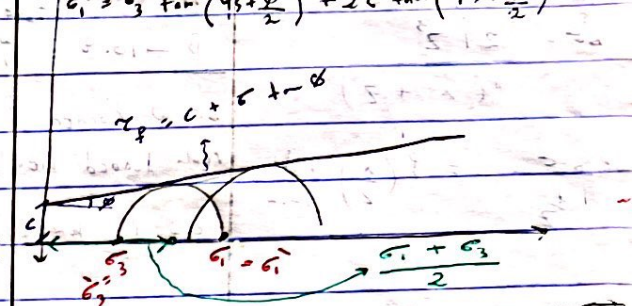 σ₁ = σ₃ tan² (45 + φ/2) + 2c tan (45 + φ/2)
τ_f = c + σ tan φ
φ
c
σ₃ σ₁ = σ₁'
σ₃' =
(σ₁ + σ₃) / 2